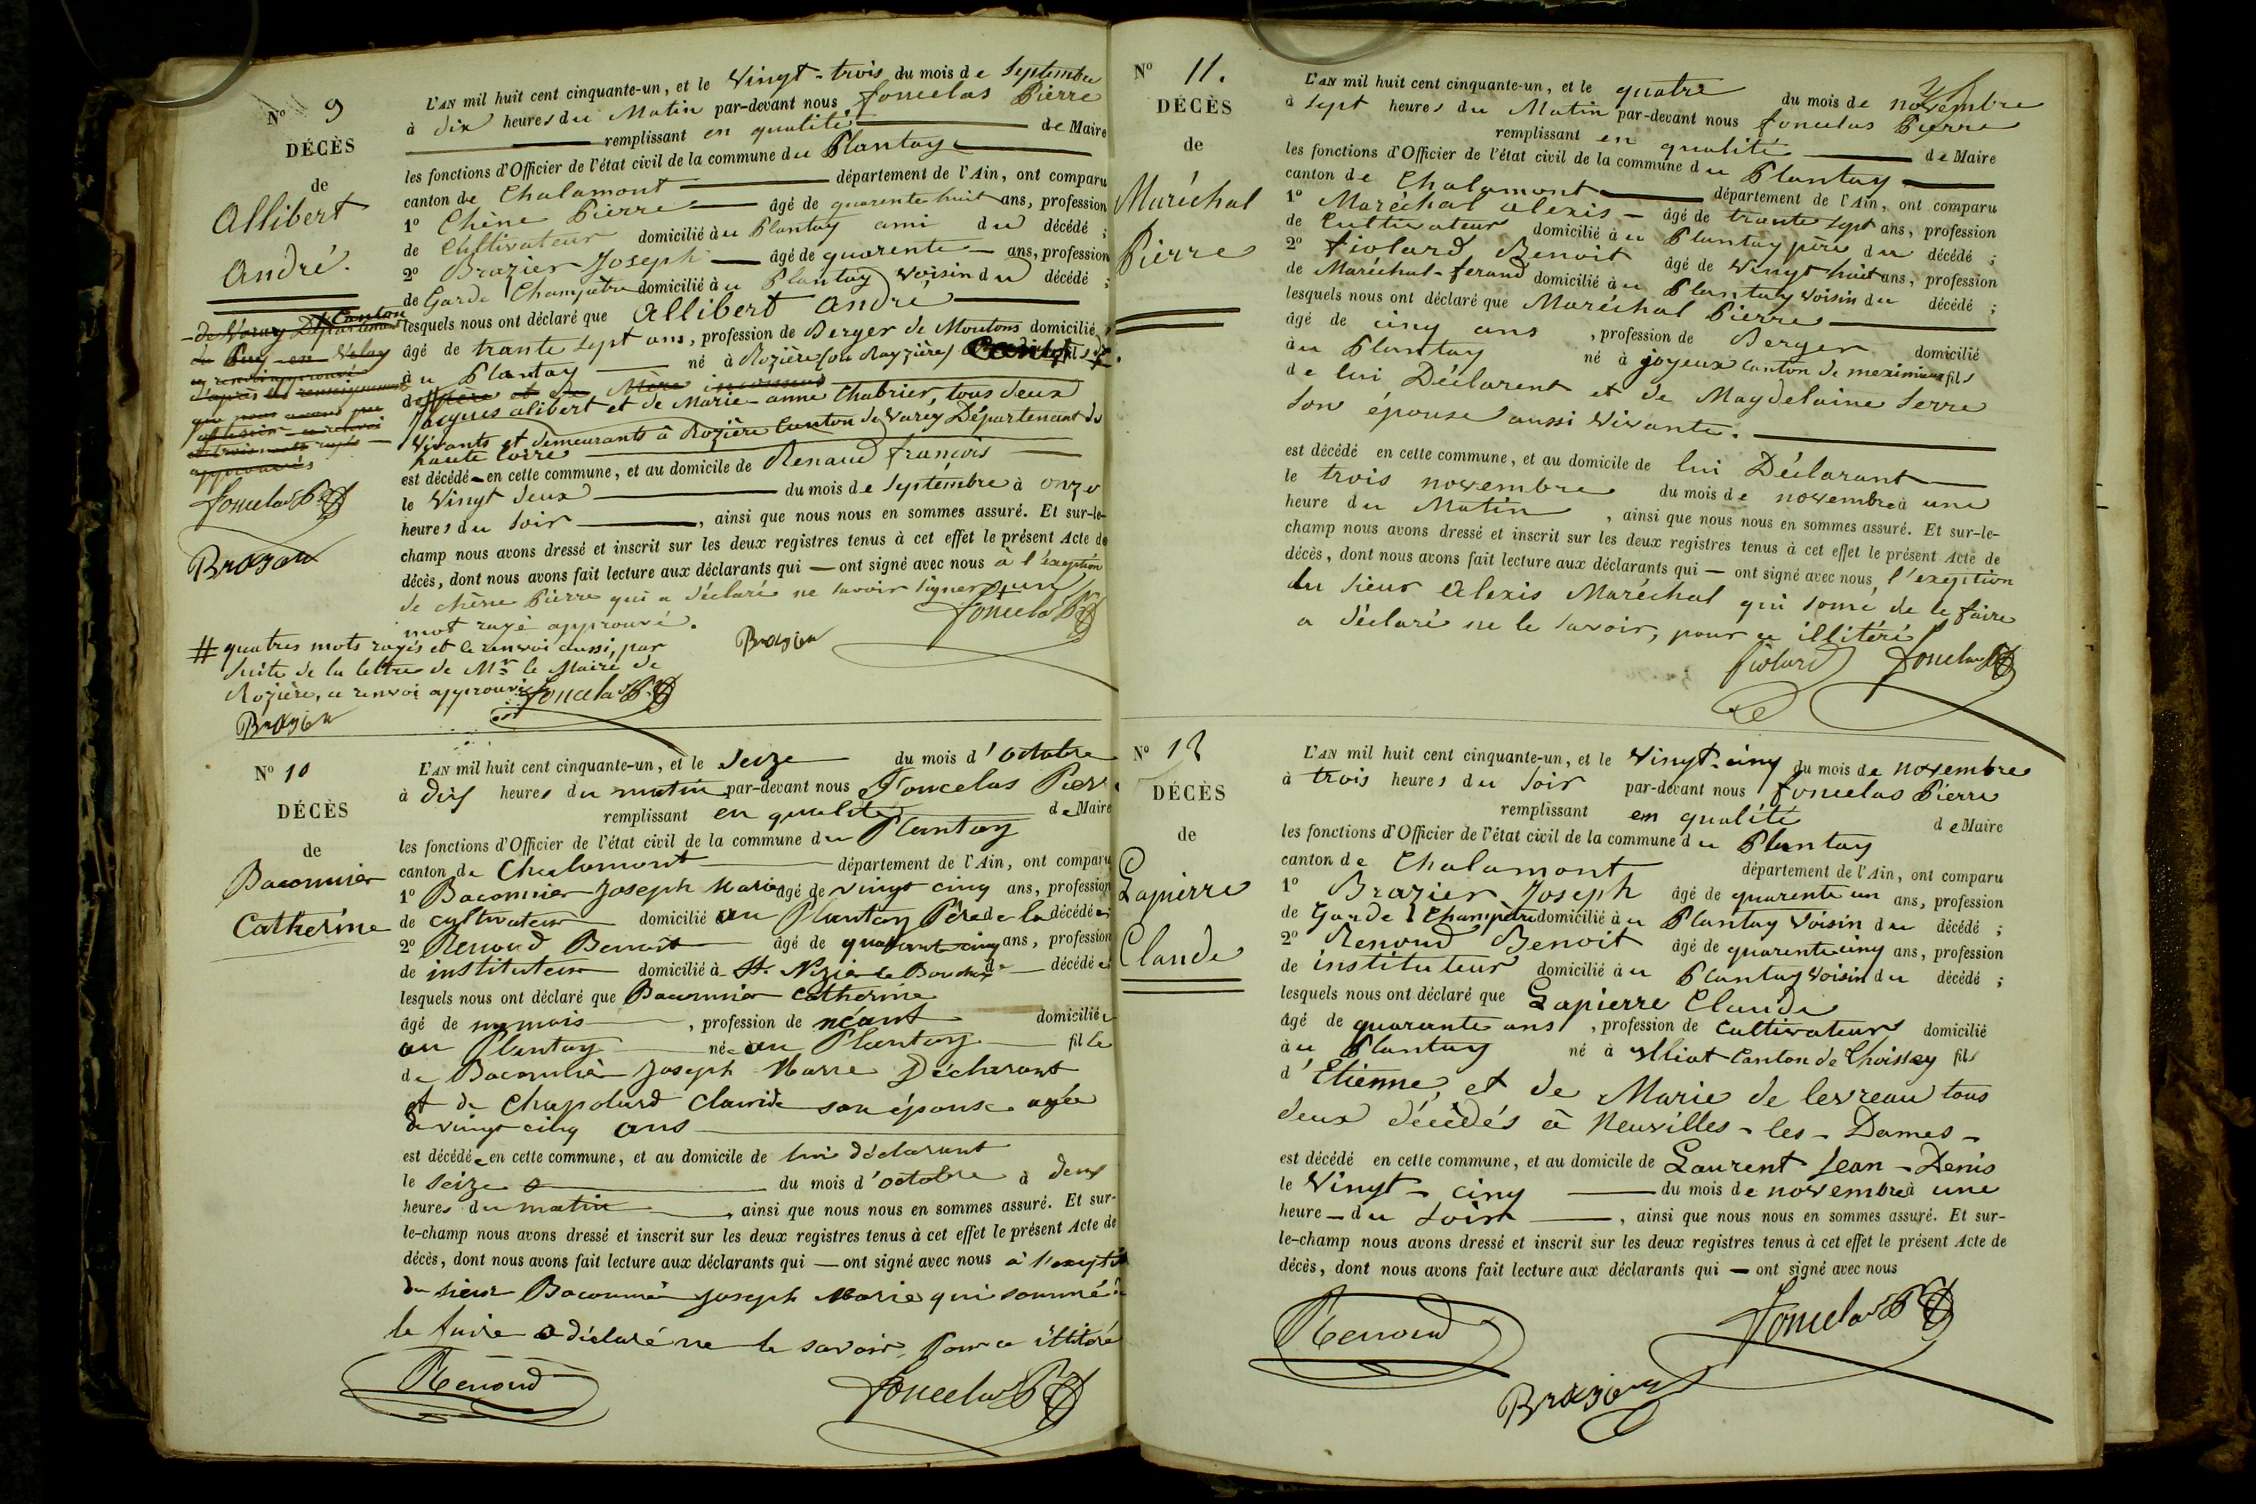 Nº 9
DÉCÈS
de
Allibert
André.
L'AN mil huit cent cinquante-un, et le Vingt-trois du mois de Septembre
à dix heures du Matin par-devant nous Joncelas Pierre
remplissant en qualité de Maire
les fonctions d'Officier de l'état civil de la commune du Plantay
canton de Chalamont département de l'Ain, ont comparu
1º Chêne Pierre âgé de quarente huit ans, profession
de Cultivateur domicilié au Plantay ami du décédé ;
2º Brazier Joseph âgé de quarente ans, profession
de Garde Champetre domicilié au Plantay voisin du décédé ;
lesquels nous ont déclaré que Allibert André
âgé de trante sept ans, profession de Berger de Moutons domicilié
au Plantay né à Rozière (ou Rayzière) fils
de père et de Mère inconnus
Jacques alibert et de Marie-anne Chabrier, tous deux
Vivants et demeurants à Rozière Canton de Varey Département de
haute Loire
est décédé en cette commune, et au domicile de Renaud françois
le Vingt deux du mois de Septembre à onze
heures du Soir, ainsi que nous nous en sommes assuré. Et sur-le-
champ nous avons dressé et inscrit sur les deux registres tenus à cet effet le présent Acte de
décès, dont nous avons fait lecture aux déclarants qui — ont signé avec nous à l'exeption
de chêne Pierre qui a déclaré ne savoir signer un
mot rayé approuvé.
Brazier
Joncelas P.
de Varey Département
Canton
du Puy-en-Velay
ce renvoi approuvé
d'après les renseignements
que nous avons pu
ce renvoi
et trois mots rayés
approuvés
Joncelas P.
Brazier
# quatres mots rayés et le renvoi aussi, par
suite de la lettre de Mr le Maire de
Rozière, ce renvoi approuvé
Joncelas P.
Brazier
Nº 10
DÉCÈS
de
Baconnier
Catherine
L'AN mil huit cent cinquante-un, et le Seize du mois d'octobre
à dix heures du matin par-devant nous Joncelas Pier
remplissant en qualité de Maire
les fonctions d'Officier de l'état civil de la commune du Plantay
canton de Chalamont département de l'Ain, ont comparu
1º Baconnier Joseph Marie âgé de vingt cinq ans, profession
de cultivateur domicilié au Plantay Père de la décédée
2º Renoud Benoit âgé de quarante cinq ans, profession
de instituteur domicilié à St. Nizier le Bouchoux de décédée
lesquels nous ont déclaré que Baconnier Catherine
âgé de un mois, profession de néant domiciliée
au Plantay née au Plantay fille
de Baconnier Joseph Marie Déclarant
et de Chapolard Clauride son épouse agée
de vingt cinq ans
est décédée en cette commune, et au domicile de lui déclarant
le seize du mois d'octobre à deux
heures du matin, ainsi que nous nous en sommes assuré. Et sur-
le-champ nous avons dressé et inscrit sur les deux registres tenus à cet effet le présent Acte de
décès, dont nous avons fait lecture aux déclarants qui — ont signé avec nous à l'exeption
du sieur Baconnier Joseph Marie qui sommé de
le faire a déclaré ne le savoir, pour ce illitéré
Renoud
Joncelas P.
Nº 11.
DÉCÈS
de
Maréchal
Pierre
L'AN mil huit cent cinquante-un, et le quatre du mois de novembre
à sept heures du Matin par-devant nous Joncelas Pierre
remplissant en qualité de Maire
les fonctions d'Officier de l'état civil de la commune du Plantay
canton de Chalamont département de l'Ain, ont comparu
1º Maréchal alexis âgé de trante sept ans, profession
de Cultivateur domicilié au Plantay père du décédé ;
2º fiolard Benoit âgé de Vingt huit ans, profession
de Maréchal-ferand domicilié au Plantay Voisin du décédé ;
lesquels nous ont déclaré que Maréchal Pierre
âgé de cinq ans, profession de Berger domicilié
au Plantay né à joyeux Canton de meximieux fils
de lui Déclarent et de Magdelaine Serre
Son épouse aussi Vivante.
est décédé en cette commune, et au domicile de lui Déclarant
le trois novembre du mois de novembre à une
heure du Matin, ainsi que nous nous en sommes assuré. Et sur-le-
champ nous avons dressé et inscrit sur les deux registres tenus à cet effet le présent Acte de
décès, dont nous avons fait lecture aux déclarants qui — ont signé avec nous, l'exeption
du Sieur Alexis Maréchal qui somé de le faire
a déclaré ne le Savoir, pour ce illitéré
fiolard
Joncelas P.
Nº 12
DÉCÈS
de
Lapierre
Claude
L'AN mil huit cent cinquante-un, et le Vingt-cinq du mois de novembre
à trois heures du Soir par-devant nous Joncelas Pierre
remplissant en qualité de Maire
les fonctions d'Officier de l'état civil de la commune du Plantay
canton de Chalamont département de l'Ain, ont comparu
1º Brazier Joseph âgé de quarente un ans, profession
de Garde Champètre domicilié au Plantay Voisin du décédé ;
2º Renoud Benoit âgé de quarente cinq ans, profession
de instituteur domicilié au Plantay Voisin du décédé ;
lesquels nous ont déclaré que Lapierre Claude
âgé de quarante ans, profession de Cultivateur domicilié
au Plantay né à illiat Canton de Thoissey fils
d'Etienne, et de Marie de levreau tous
deux décédés à Neuvilles-les-Dames-
est décédé en cette commune, et au domicile de Laurent Jean-Denis
le Vingt-cinq du mois de novembre à une
heure du Soir, ainsi que nous nous en sommes assuré. Et sur-
le-champ nous avons dressé et inscrit sur les deux registres tenus à cet effet le présent Acte de
décès, dont nous avons fait lecture aux déclarants qui — ont signé avec nous
Renoud
Joncelas P.
Brazier